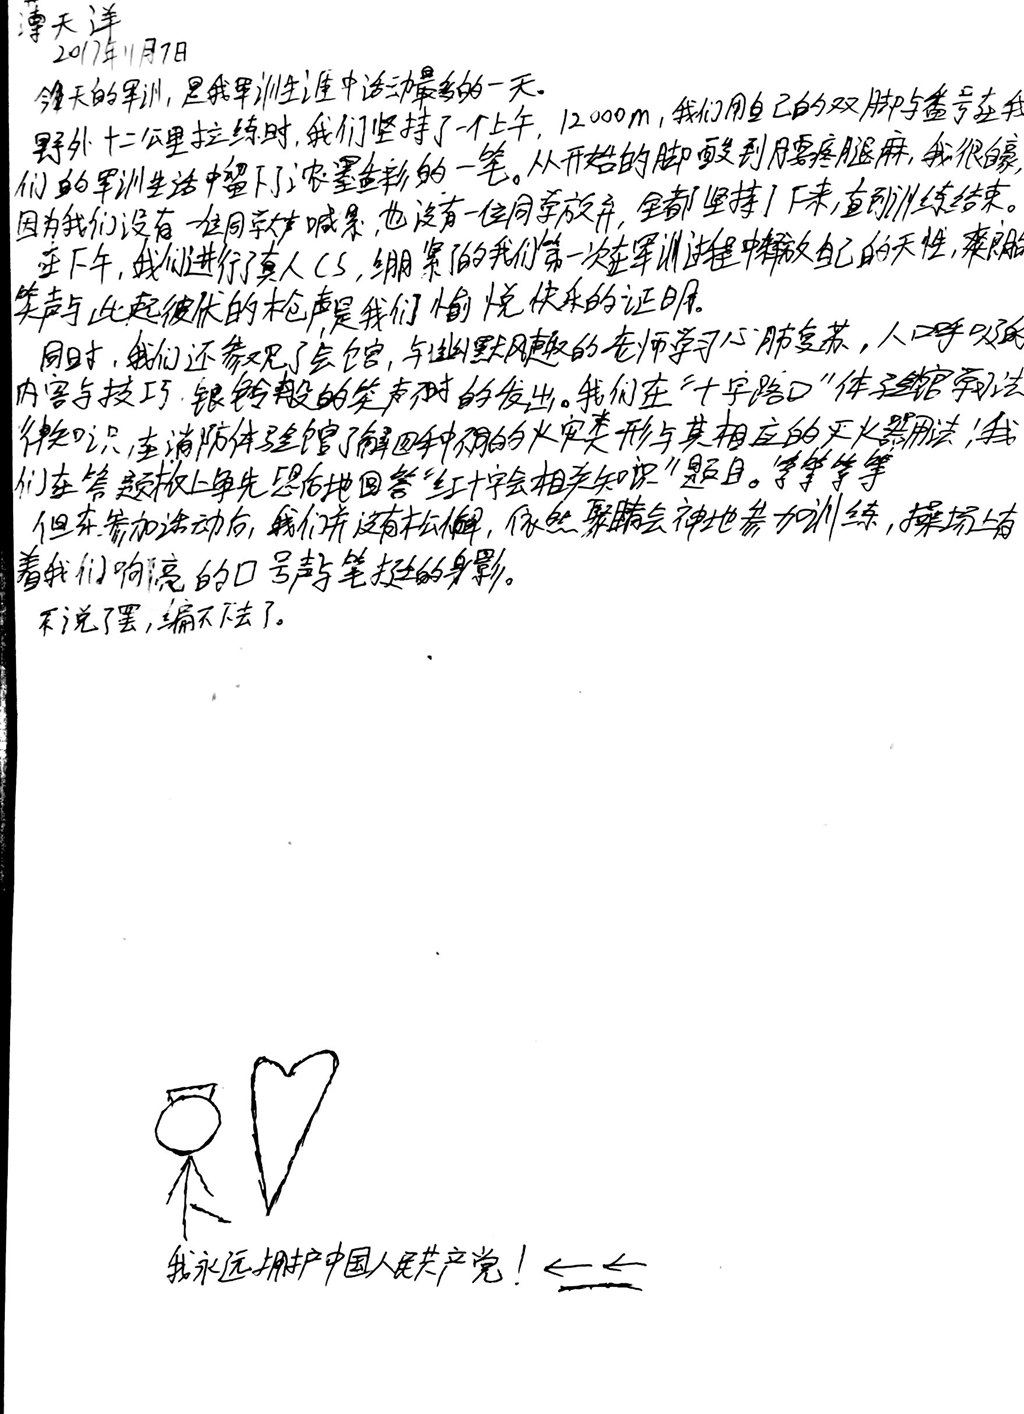 薄天洋
2017年11月7日
今天的军训，是我军训生涯中活动最多的一天。
野外十二公里拉练时，我们坚持了一个上午，12000m，我们用自己的双脚与番号在我
们的军训生活中留下了浓墨重彩的一笔。从开始的脚酸到腰疼腿麻，我很自豪，
因为我们没有一位同学大声喊累，也没有一位同学放弃，全都坚持了下来，直到训练结束。
在下午，我们进行了真人CS，绷紧了的我们第一次在军训过程中释放自己的天性，爽朗的
笑声与此起彼伏的枪声是我们愉悦快乐的证明。
同时，我们还参观了会馆，与幽默风趣的老师学习心肺复苏，人口呼吸的
内容与技巧，银铃般的笑声不时的发出。我们在“十字路口”体验馆学习法
律知识，在消防体验馆了解四种不同的火灾类形与其相应的灭火器用法；我
们在答题板上争先恐后地回答“红十字会相关知识”题目。等等等等
但在参加活动后，我们并没有松懈，依然聚睛会神地参加训练，操场上有
着我们响亮的口号声与笔挺的身影。
不说了罢，编不下去了。
我永远拥护中国人民共产党！